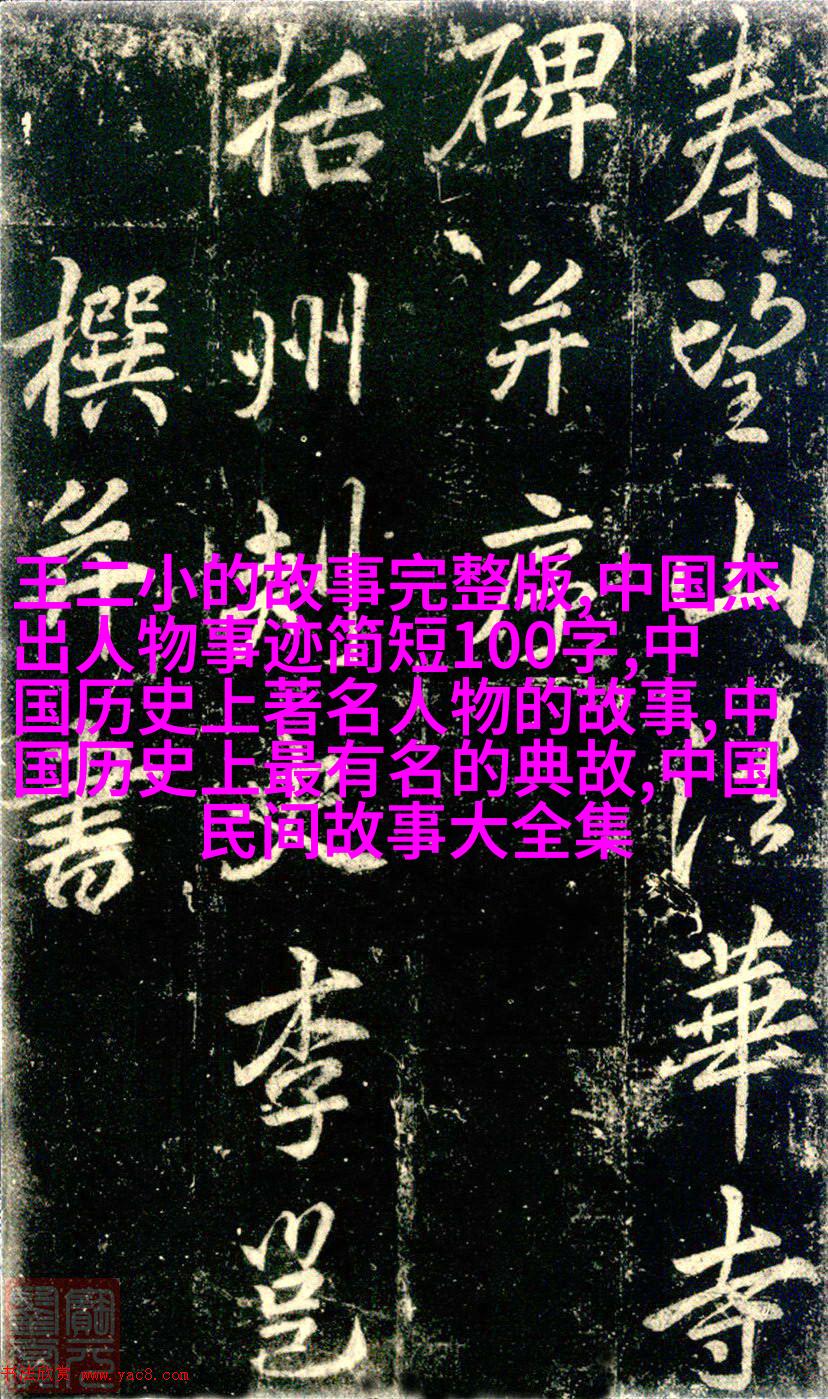 秦望山法華寺
碑并序
括州刺史李邕
撰并書
王二小的故事完整版,中国杰
出人物事迹简短100字,中
国历史上著名人物的故事,中
国历史上最有名的典故,中国
民间故事大全集
书法欣赏 www.yac8.com